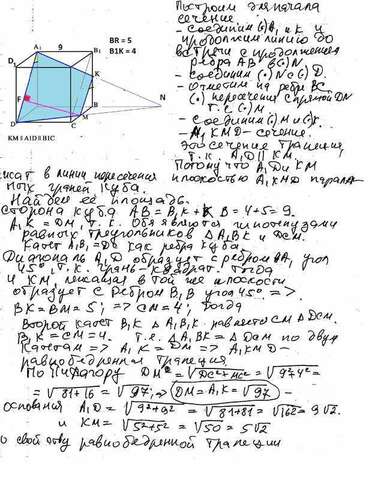 Построим для начала
сечение.
- соединим (·) A₁ и K и
продолжим линию до
встречи с продолжением
ребра AB в (·) N
- соединим (·) N с (·) D.
- Отметим на ребре BC
(·) пересечения с прямой DN
т.е (·) M
- соединим (·) M и (·) K
- A₁KMD - сечение.
Это сечение трапеция,
т.к. A₁D || KM.
Потому что A₁D и KM
A₁ 9 B₁
BK = 5
B1K = 4
D₁
K
F
B
N
D
C M
KM || A1D || B1C
лежат в линии пересечения плоскостью A₁KMD парал-
ных граней куба.
Найдем её площадь.
Сторона куба AB = B₁K + KB = 4+5 = 9.
A₁K = DM, т.к. Они являются гипотенузами
равных треугольников ΔA₁B₁K и DCM.
Катет A₁B₁ = DC как ребра куба.
Диагональ A₁D образует с ребром AA₁ угол
45°, т.к. грань - квадрат. Тогда
и KM, лежащая в той же плоскости
образует с ребром B₁B угол 45° =>
BK = BM = 5; => CM = 4; Тогда
Второй катет B₁K Δ A₁B₁K равняется CM Δ DCM.
B₁K = CM = 4. Т.е. ΔA₁B₁K = ΔDCM по двум
Катетам => A₁K = DM => A₁KMD -
равнобедренная трапеция
По Пифагору DM = √DC²+MC² = √9²+4² =
= √81+16 = √97; => DM = A₁K = √97 -
основания A₁D = √9²+9² = √81+81 = √162 = 9√2.
и KM = √5²+5² = √50 = 5√2
По свойству равнобедренной трапеции